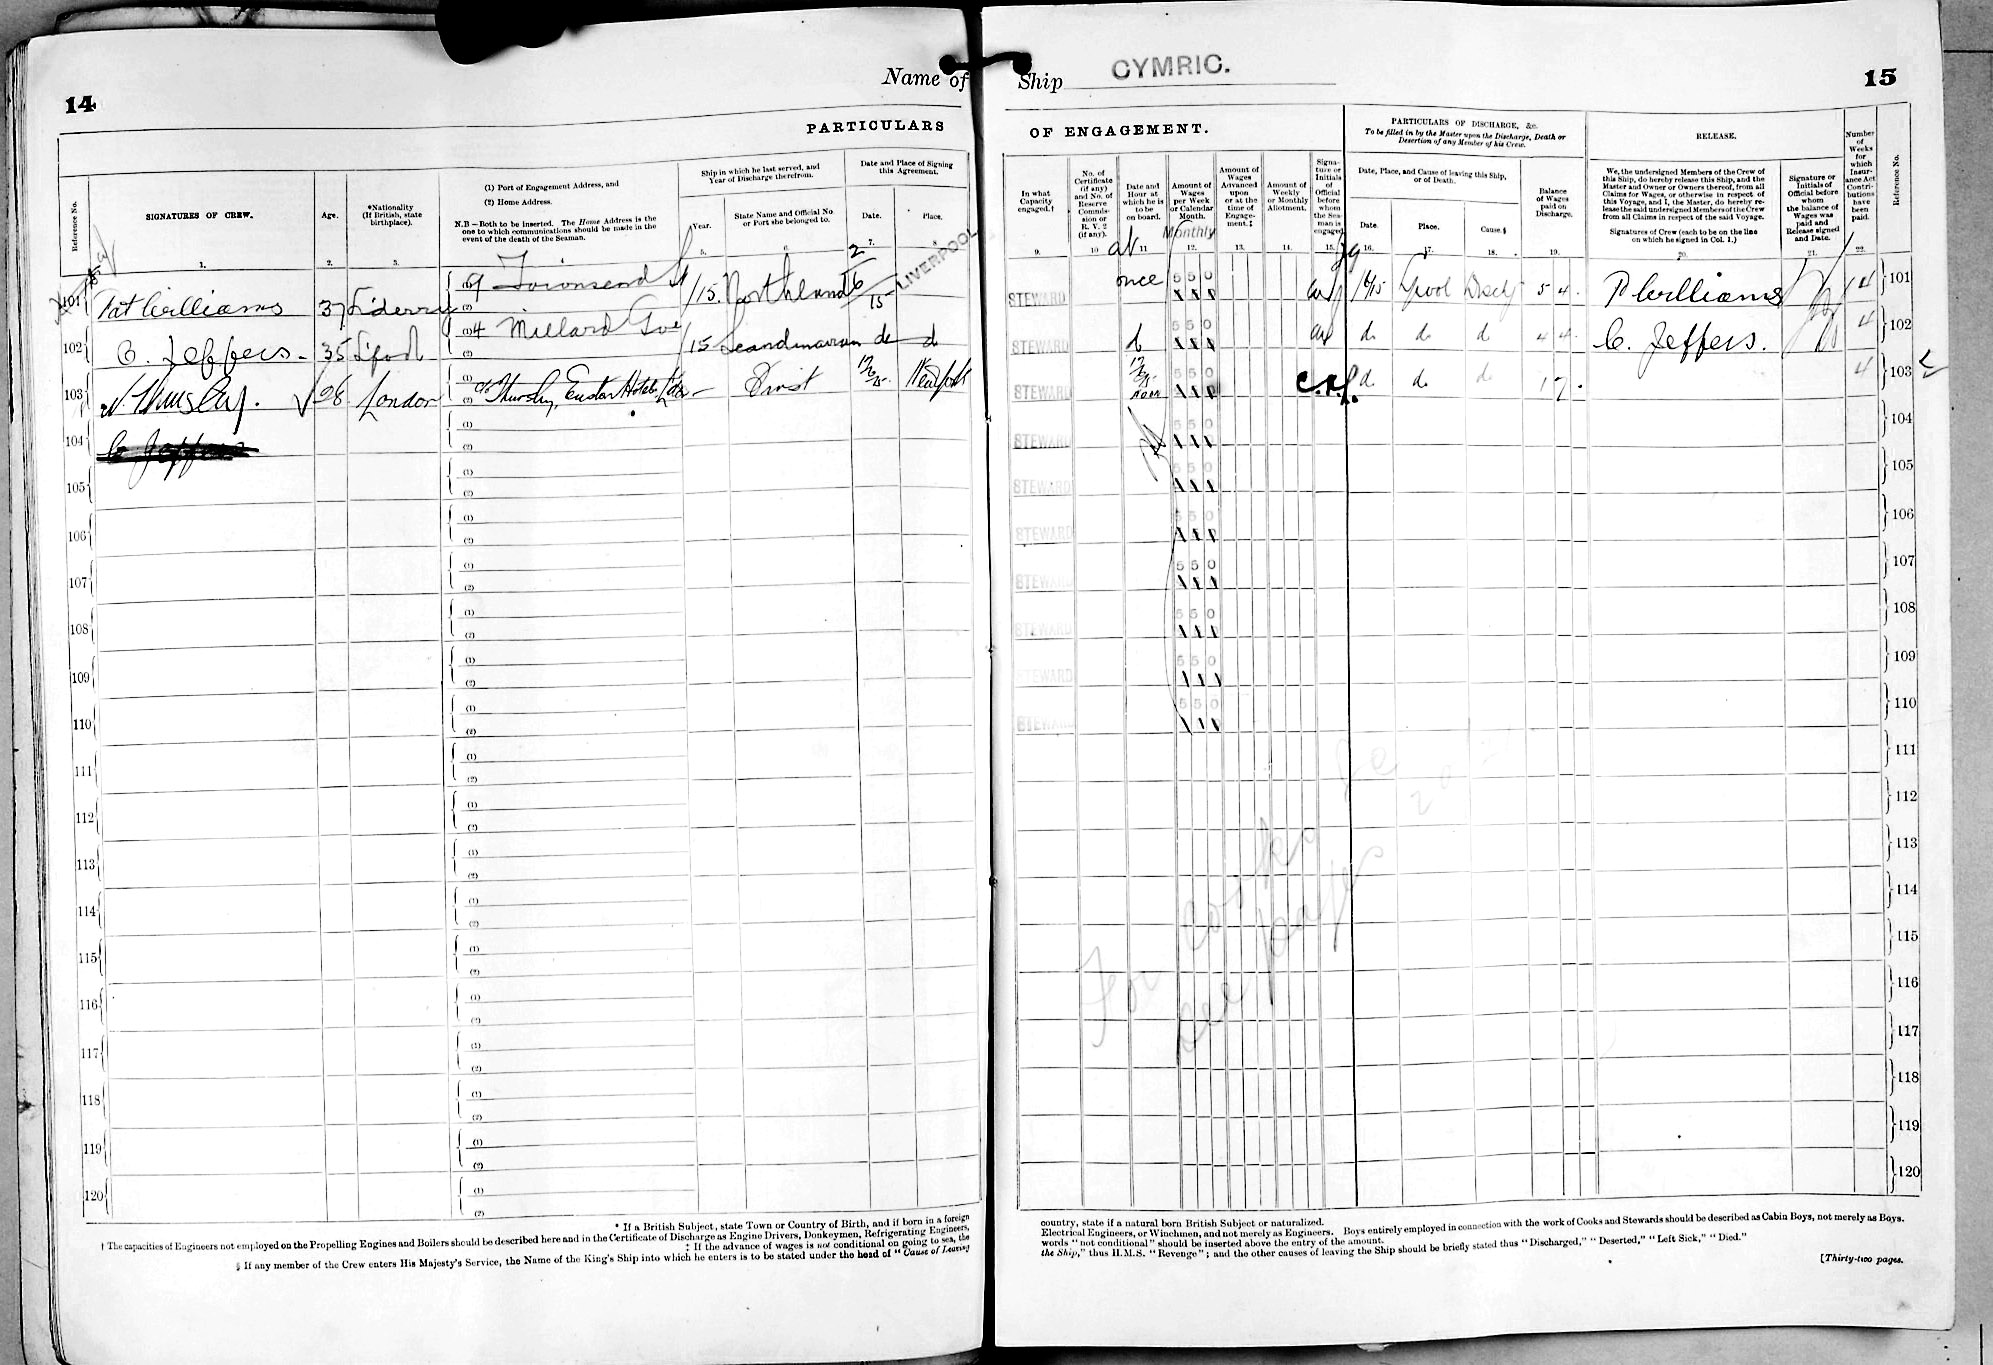 14
Name of
Ship CYMRIC.
15
PARTICULARS
OF ENGAGEMENT.
PARTICULARS OF DISCHARGE, &c.
To be filled in by the Master upon the Discharge, Death or
Desertion of any Member of his Crew.
RELEASE.
Number of Weeks for which Insurance Act Contributions have been paid.
Reference No.
Reference No.
SIGNATURES OF CREW.
Age.
*Nationality
(If British, state
birthplace).
(1) Port of Engagement Address, and
(2) Home Address.
N.B—Both to be inserted. The Home Address is the
one to which communications should be made in the
event of the death of the Seaman.
Ship in which he last served, and
Year of Discharge therefrom.
Year.
State Name and Official No
or Port she belonged to.
Date and Place of Signing
this Agreement.
Date.
Place.
In what
Capacity
engaged.†
No. of
Certificate
(if any)
and No. of
Reserve
Commis-
sion or
R. V. 2
(if any).
Date and
Hour at
which he is
to be
on board.
Amount of
Wages
per Week
or Calendar
Month.
Monthly
Amount of
Wages
Advanced
upon
or at the
time of
Engage-
ment.‡
Amount of
Weekly
or Monthly
Allotment.
Signa-
ture or
Initials
of
Official
before
whom
the Sea-
man is
engaged
Date, Place, and Cause of leaving this Ship,
or of Death.
Date.
Place.
Cause.§
Balance
of Wages
paid on
Discharge.
We, the undersigned Members of the Crew of
this Ship, do hereby release this Ship, and the
Master and Owner or Owners thereof, from all
Claims for Wages, or otherwise in respect of
this Voyage, and I, the Master, do hereby re-
lease the said undersigned Members of the Crew
from all Claims in respect of the said Voyage.
Signatures of Crew (each to be on the line
on which he signed in Col. 1.)
Signature or
Initials of
Official before
whom
the balance of
Wages was
paid and
Release signed
and Date.
1. 2. 3. 5. 6. 7. 9. 10 11 12. 13. 14. 15. 16. 17. 18. 19. 20. 21. 22.
101 Pat Williams 37 L'derry (1) 9 Townsend St /15. Northland 2/6/15 LIVERPOOL STEWARD at once 5 5 0 19/6/15 Lpool Disch 5 4 P Williams 4 101
(2)
102 C. Jeffers 35 L'pool (1) 4 Millard Gve /15 Scandinavian do do STEWARD do 5 5 0 do do do 4 4 C. Jeffers. 4 102
(2)
103 98 London (1) Euston Hotel First 12/6/15 New York STEWARD 12/6/15 noon 5 5 0 do do do 17 4 103
(2)
104 C Jeffers (1) (2) STEWARD 5 5 0 104
105 (1) (2) STEWARD 5 5 0 105
106 (1) (2) STEWARD 5 5 0 106
107 (1) (2) STEWARD 5 5 0 107
108 (1) (2) STEWARD 5 5 0 108
109 (1) (2) STEWARD 5 5 0 109
110 (1) (2) STEWARD 5 5 0 110
111 (1) (2) 111
112 (1) (2) 112
113 (1) (2) 113
114 (1) (2) 114
115 (1) (2) 115
116 (1) (2) 116
117 (1) (2) 117
118 (1) (2) 118
119 (1) (2) 119
120 (1) (2) 120
For cooks
see page
* If a British Subject, state Town or Country of Birth, and if born in a foreign
country, state if a natural born British Subject or naturalized.
† The capacities of Engineers not employed on the Propelling Engines and Boilers should be described here and in the Certificate of Discharge as Engine Drivers, Donkeymen, Refrigerating Engineers,
Electrical Engineers, or Winchmen, and not merely as Engineers. Boys entirely employed in connection with the work of Cooks and Stewards should be described as Cabin Boys, not merely as Boys.
‡ If the advance of wages is not conditional on going to sea, the
words "not conditional" should be inserted above the entry of the amount.
§ If any member of the Crew enters His Majesty's Service, the Name of the King's Ship into which he enters is to be stated under the head of "Cause of Leaving
the Ship," thus H.M.S. "Revenge"; and the other causes of leaving the Ship should be briefly stated thus "Discharged," "Deserted," "Left Sick," "Died."
[Thirty-two pages.